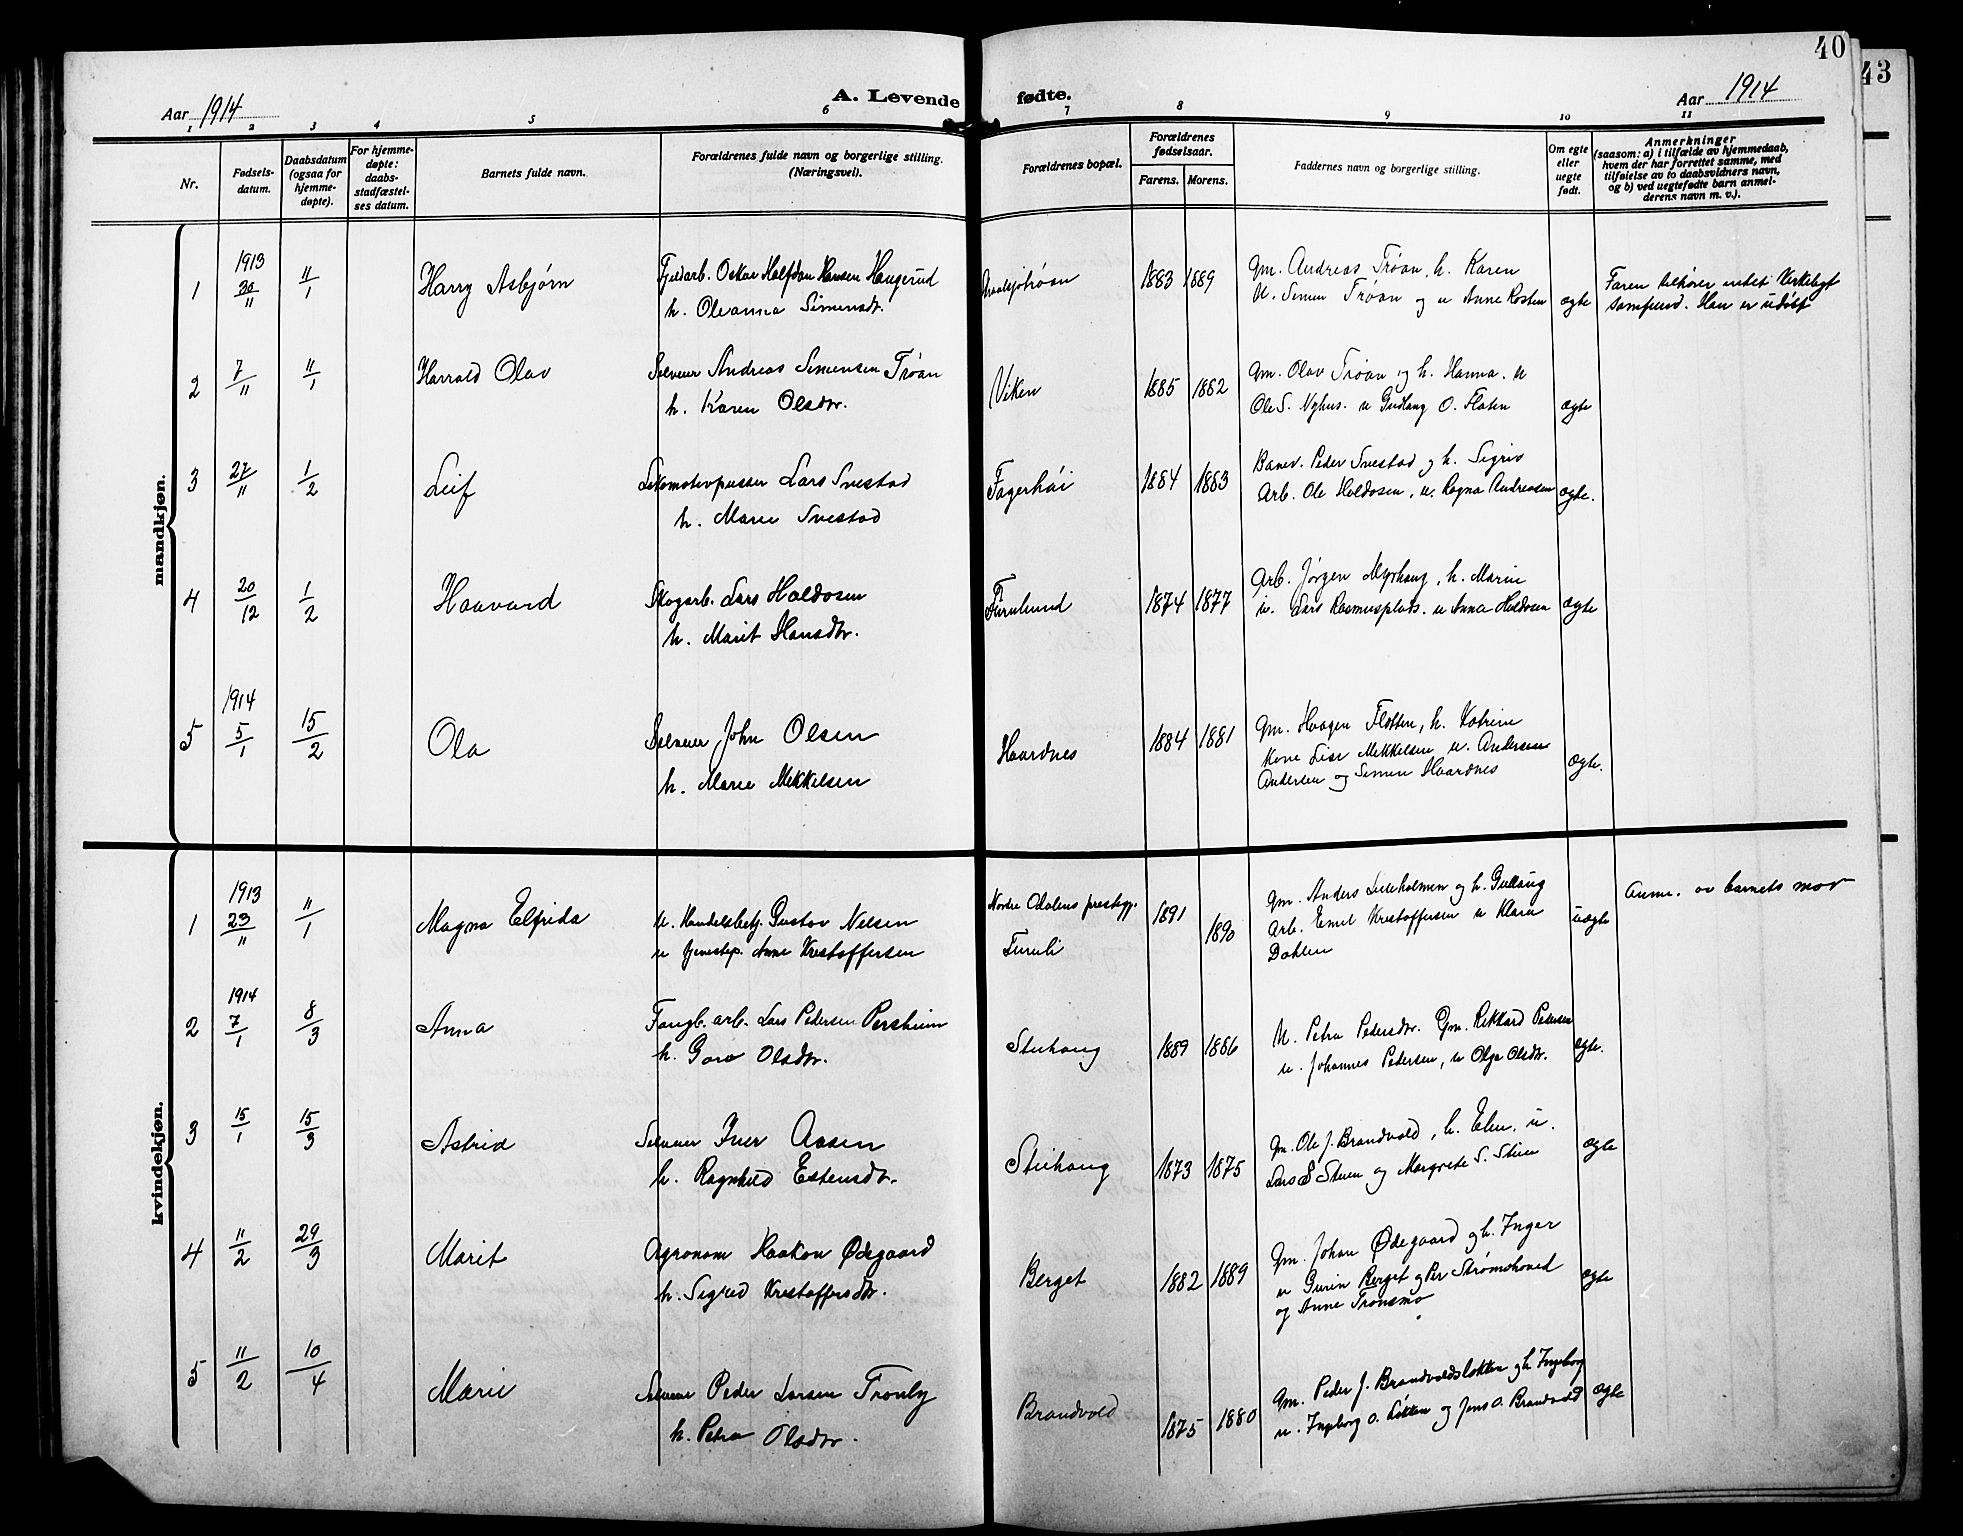 40
43
Aar 1914
A. Levende fødte.
Aar 1914
1 2 3 4 5 6 7 8 9 10 11
Nr.
Fødsels-
datum.
Daabsdatum
(ogsaa for
hjemme-
døpte).
For hjemme-
døpte:
daabs-
stadfæstel-
ses datum.
Barnets fulde navn.
Forældrenes fulde navn og borgerlige stilling.
(Næringsvei).
Forældrenes bopæl.
Forældrenes
fødselsaar.
Farens. Morens.
Faddernes navn og borgerlige stilling.
Om egte
eller
uegte
født.
Anmerkninger
(saasom: a) i tilfælde av hjemmedaab,
hvem der har forrettet samme, med
tilføielse av to daabsvidners navn,
og b) ved uegtefødte barn anmel-
derens navn m. v.).
mandkjøn.
1 1913 30/11 11/1 Harry Asbjørn
Oskar Halfdan Hansen Haugerud
h. Oleanna Simensdr.
1883 1889
Gm. Andreas Trøan, h. Karen
U. Simen Trøan og u Anne Rosten
egte
Faren tilhører intet kirkeligt
samfund. Han er udøbt
2 7/11 11/1 Harald Olav
Selveier Andreas Simensen Trøan
h. Karen Olsdtr.
Viken
1885 1882
Gm. Olav Trøan og h. Hanna. u
Ole S. Nyhus. u Gudlaug O. Floten
egte
3 27/11 1/2 Leif
Lokomotivpusser Lars Svestad
h. Marie Svestad
Fagerhøi
1884 1883
Banev. Peder Svestad og h. Sigrid
Arb. Ole Haldosen, u. Ragna Andreasen
egte.
4 20/12 1/2 Haavard
Skogarb. Lars Haldosen
h. Marit Hansdtr.
Furulund
1874 1877
Arb. Jørgen Myrhaug, h. Marin
u. Lars Rasmusplads. u Anna Haldosen
egte
5 1914 5/1 15/2 Ola
Selveier John Olsen
h. Marie Mikkelsen
Haardnes
1884 1881
Gm. Haagen Flotten, h. Katrine
Kone Lise Mikkelsen u. Andersen
Andersen og Simen Haardnes
egte.
kvindekjøn.
1 1913 23/11 11/1 Magna Elfrida
U. Handelsbetj. Gustav Nilsen
u Tjenestep. Anne Kristoffersen
Nordre Odalens prestegj.
Furuli
1891 1890
Gm. Anders Lilleholmen og h. Gullaug
Arb. Emil Kristoffersen u Klara
Dahlen
uegte
Anm. av barnets mor
2 1914 7/1 8/3 Anna
arb. Lars Pedersen Persheim
h. Goro Olsdtr.
Steihaug
1889 1886
U. Petra Pedersdtr. Gm. Rikkard Pedersen
u. Johannes Pedersen, u Olga Olsdtr.
egte.
3 15/1 15/3 Astrid
Selveier Iver Aasen
h. Ragnhild Estensdtr.
Steihaug
1873 1875
Gm. Ole J. Brandvold, h. Elen, u.
Lars S Steien og Margrete S. Steien
egte
4 11/2 29/3 Marit
Agronom Haakon Ødegaard
h. Sigrid Kristoffersdtr.
Berget
1882 1889
Gm. Johan Ødegaard og h. Inger
u Gurin Berget og Per Strømshoved
og Anne Tronsmo
egte
5 11/2 10/4 Marie
Selveier Peder Larsen Tronby
h. Petra Olsdtr.
Brandvold
1875 1880
Gm. Peder J. Brandvoldsløkken og h Ingeborg
u. Ingeborg O. Løkken og Jens O. Brandvold
egte